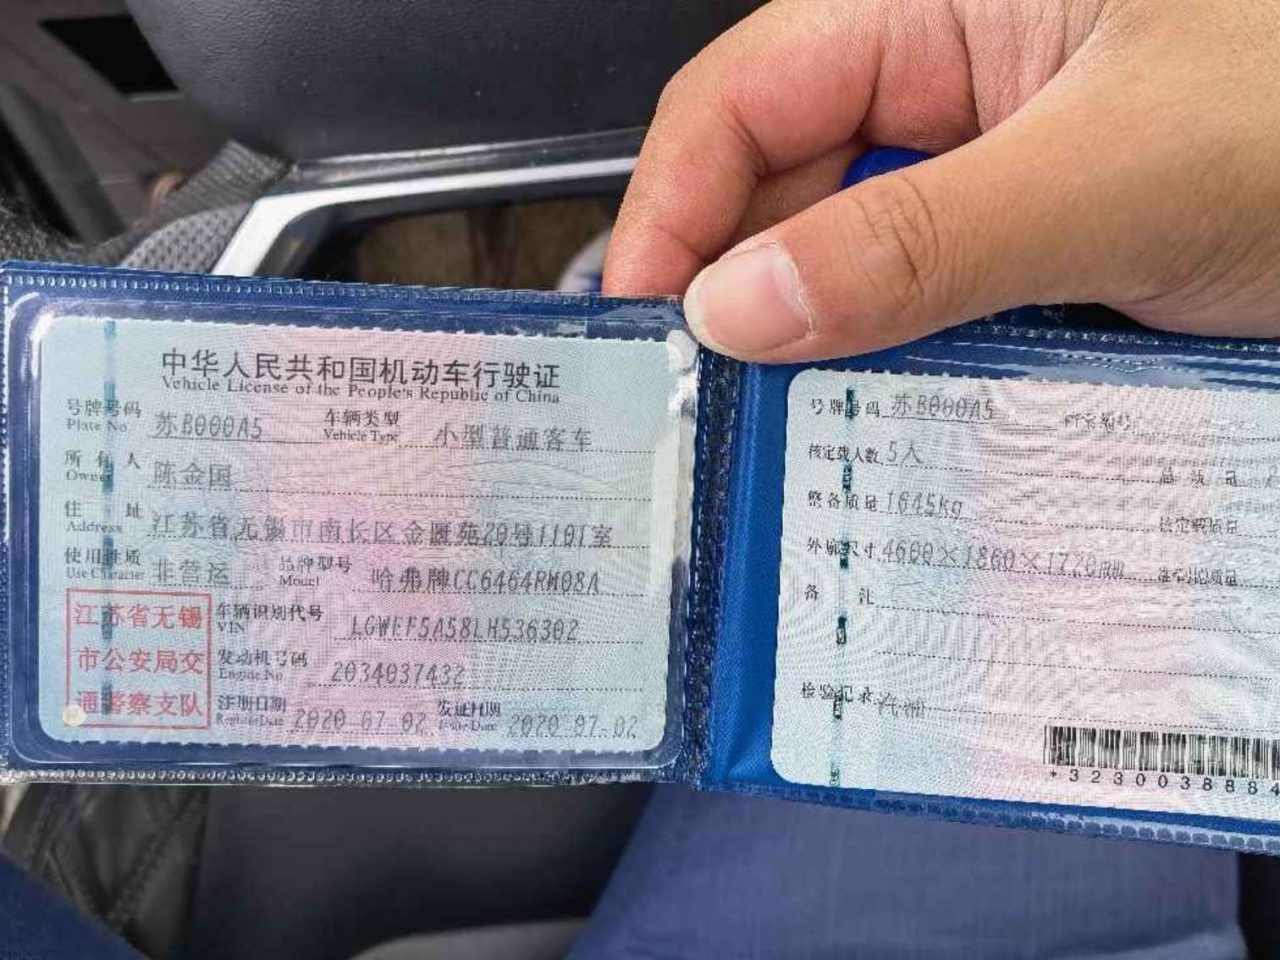 中华人民共和国机动车行驶证
Vehicle License of the People's Republic of China
号牌号码 苏B000A5 车辆类型 小型普通客车
Plate No. Vehicle Type
所有人 陈金国
Owner
住址 江苏省无锡市南长区金匮苑20号1101室
Address
使用性质 非营运 品牌型号 哈弗牌CC6464RM08A
Use Character Model
江苏省无锡
市公安局交
通警察支队
车辆识别代号 LGWEF5A58LH536302
VIN
发动机号码 2034037432
Engine No.
注册日期 2020.07.02 发证日期 2020.07.02
Register Date Issue Date
号牌号码 苏B000A5 档案编号
核定载人数 5人
总质量
整备质量 1645kg
核定载质量
外廓尺寸 4600×1860×1720mm
准牵引总质量
备注
检验记录 汽油
*3230038884